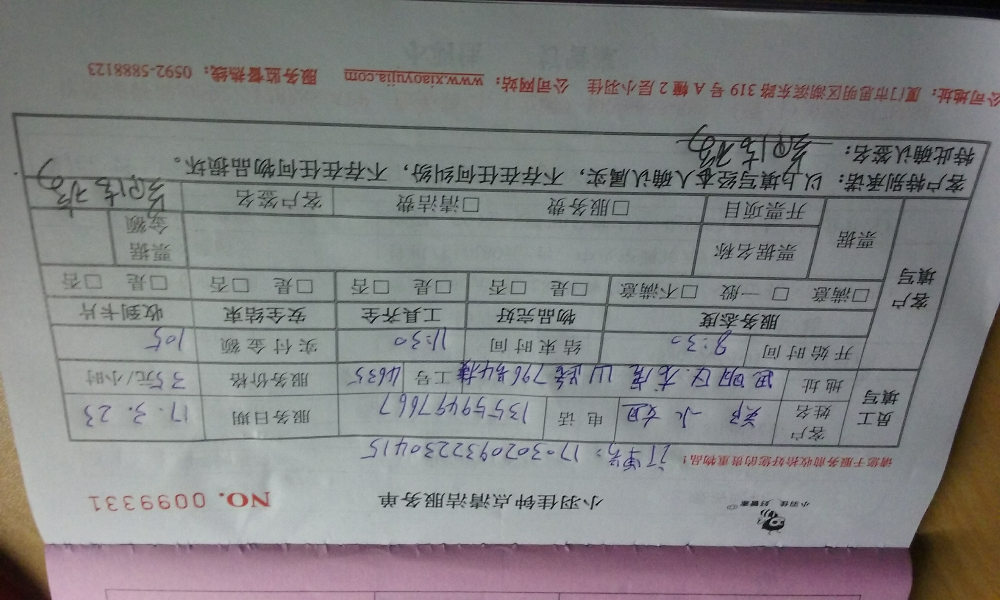 小羽佳 好管家
小羽佳钟点清洁服务单 NO. 0099331
请您于服务前收拾好您的贵重物品!
订单号:1703020932230415
员工填写 客户姓名 电话 13559497667 服务日期 17.3.23
地址 思明区 山路796号4楼 工号 4635 服务价格 35元/小时
开始时间 8:30 结束时间 11:30 实付金额 105
客户填写 服务态度 物品完好 工具齐全 安全结束 收到卡片
□满意 □一般 □不满意 □是 □否 □是 □否 □是 □否 □是 □否
票据 票据名称 票据金额
开票项目 □服务费 □清洁费 客户签名
客户特别承诺:以上填写经本人确认属实,不存在任何纠纷,不存在任何物品损坏。
特此确认签名:
公司地址:厦门市思明区湖滨东路319号A幢2层小羽佳 公司网站:www.xiaoyujia.com 服务监督热线:0592-5888123